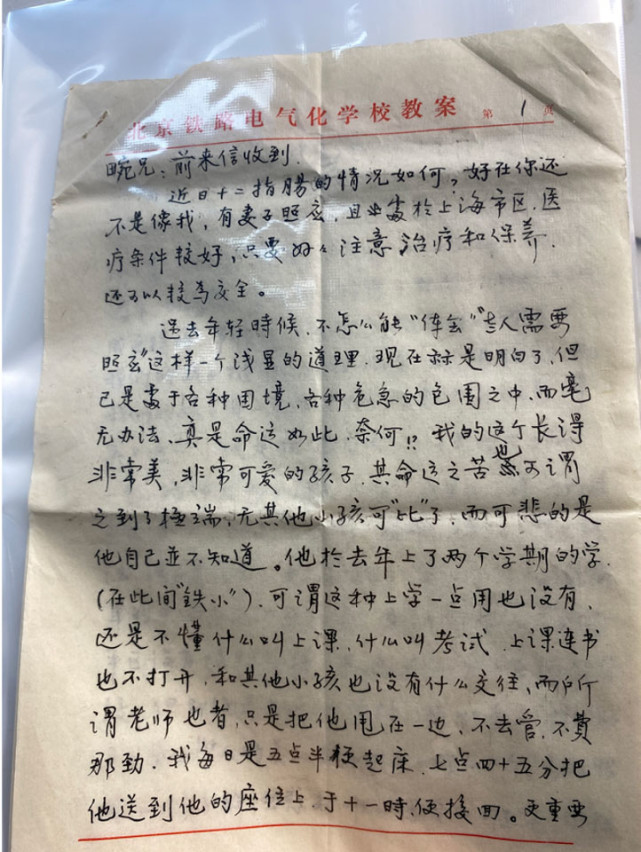 北京铁路电气化学校教案 第1页
晼兄：前来信收到.
近日十二指腸的情况如何？好在你还
不是像我，有妻子照应，且处於上海市区，医
疗条件较好，只要好々注意治疗和保养，
还可以较为安全。
过去年轻時候，不怎么能“体会”“老人需要
照应”这样一个浅显的道理，现在算是明白了，但
已是处于各种困境，各种危急的包围之中，而毫
无办法，真是命运如此，奈何!? 我的这个长得
非常美，非常可爱的孩子，其命运之苦也可谓
之到了極端，无其他小孩可“比”了，而可悲的是
他自己並不知道。他於去年上了两个学期的学，
(在此间“铁小”)，可谓这种上学一点用也没有，
还是不懂什么叫上课，什么叫考试，上课连书
也不打开，和其他小孩也没有什么交往，而所
谓老师也者，只是把他甩在一边，不去管，不費
那劲. 我每日是五点半起床，七点四十五分把
他送到他的座位上，于十一時便接回。更重要